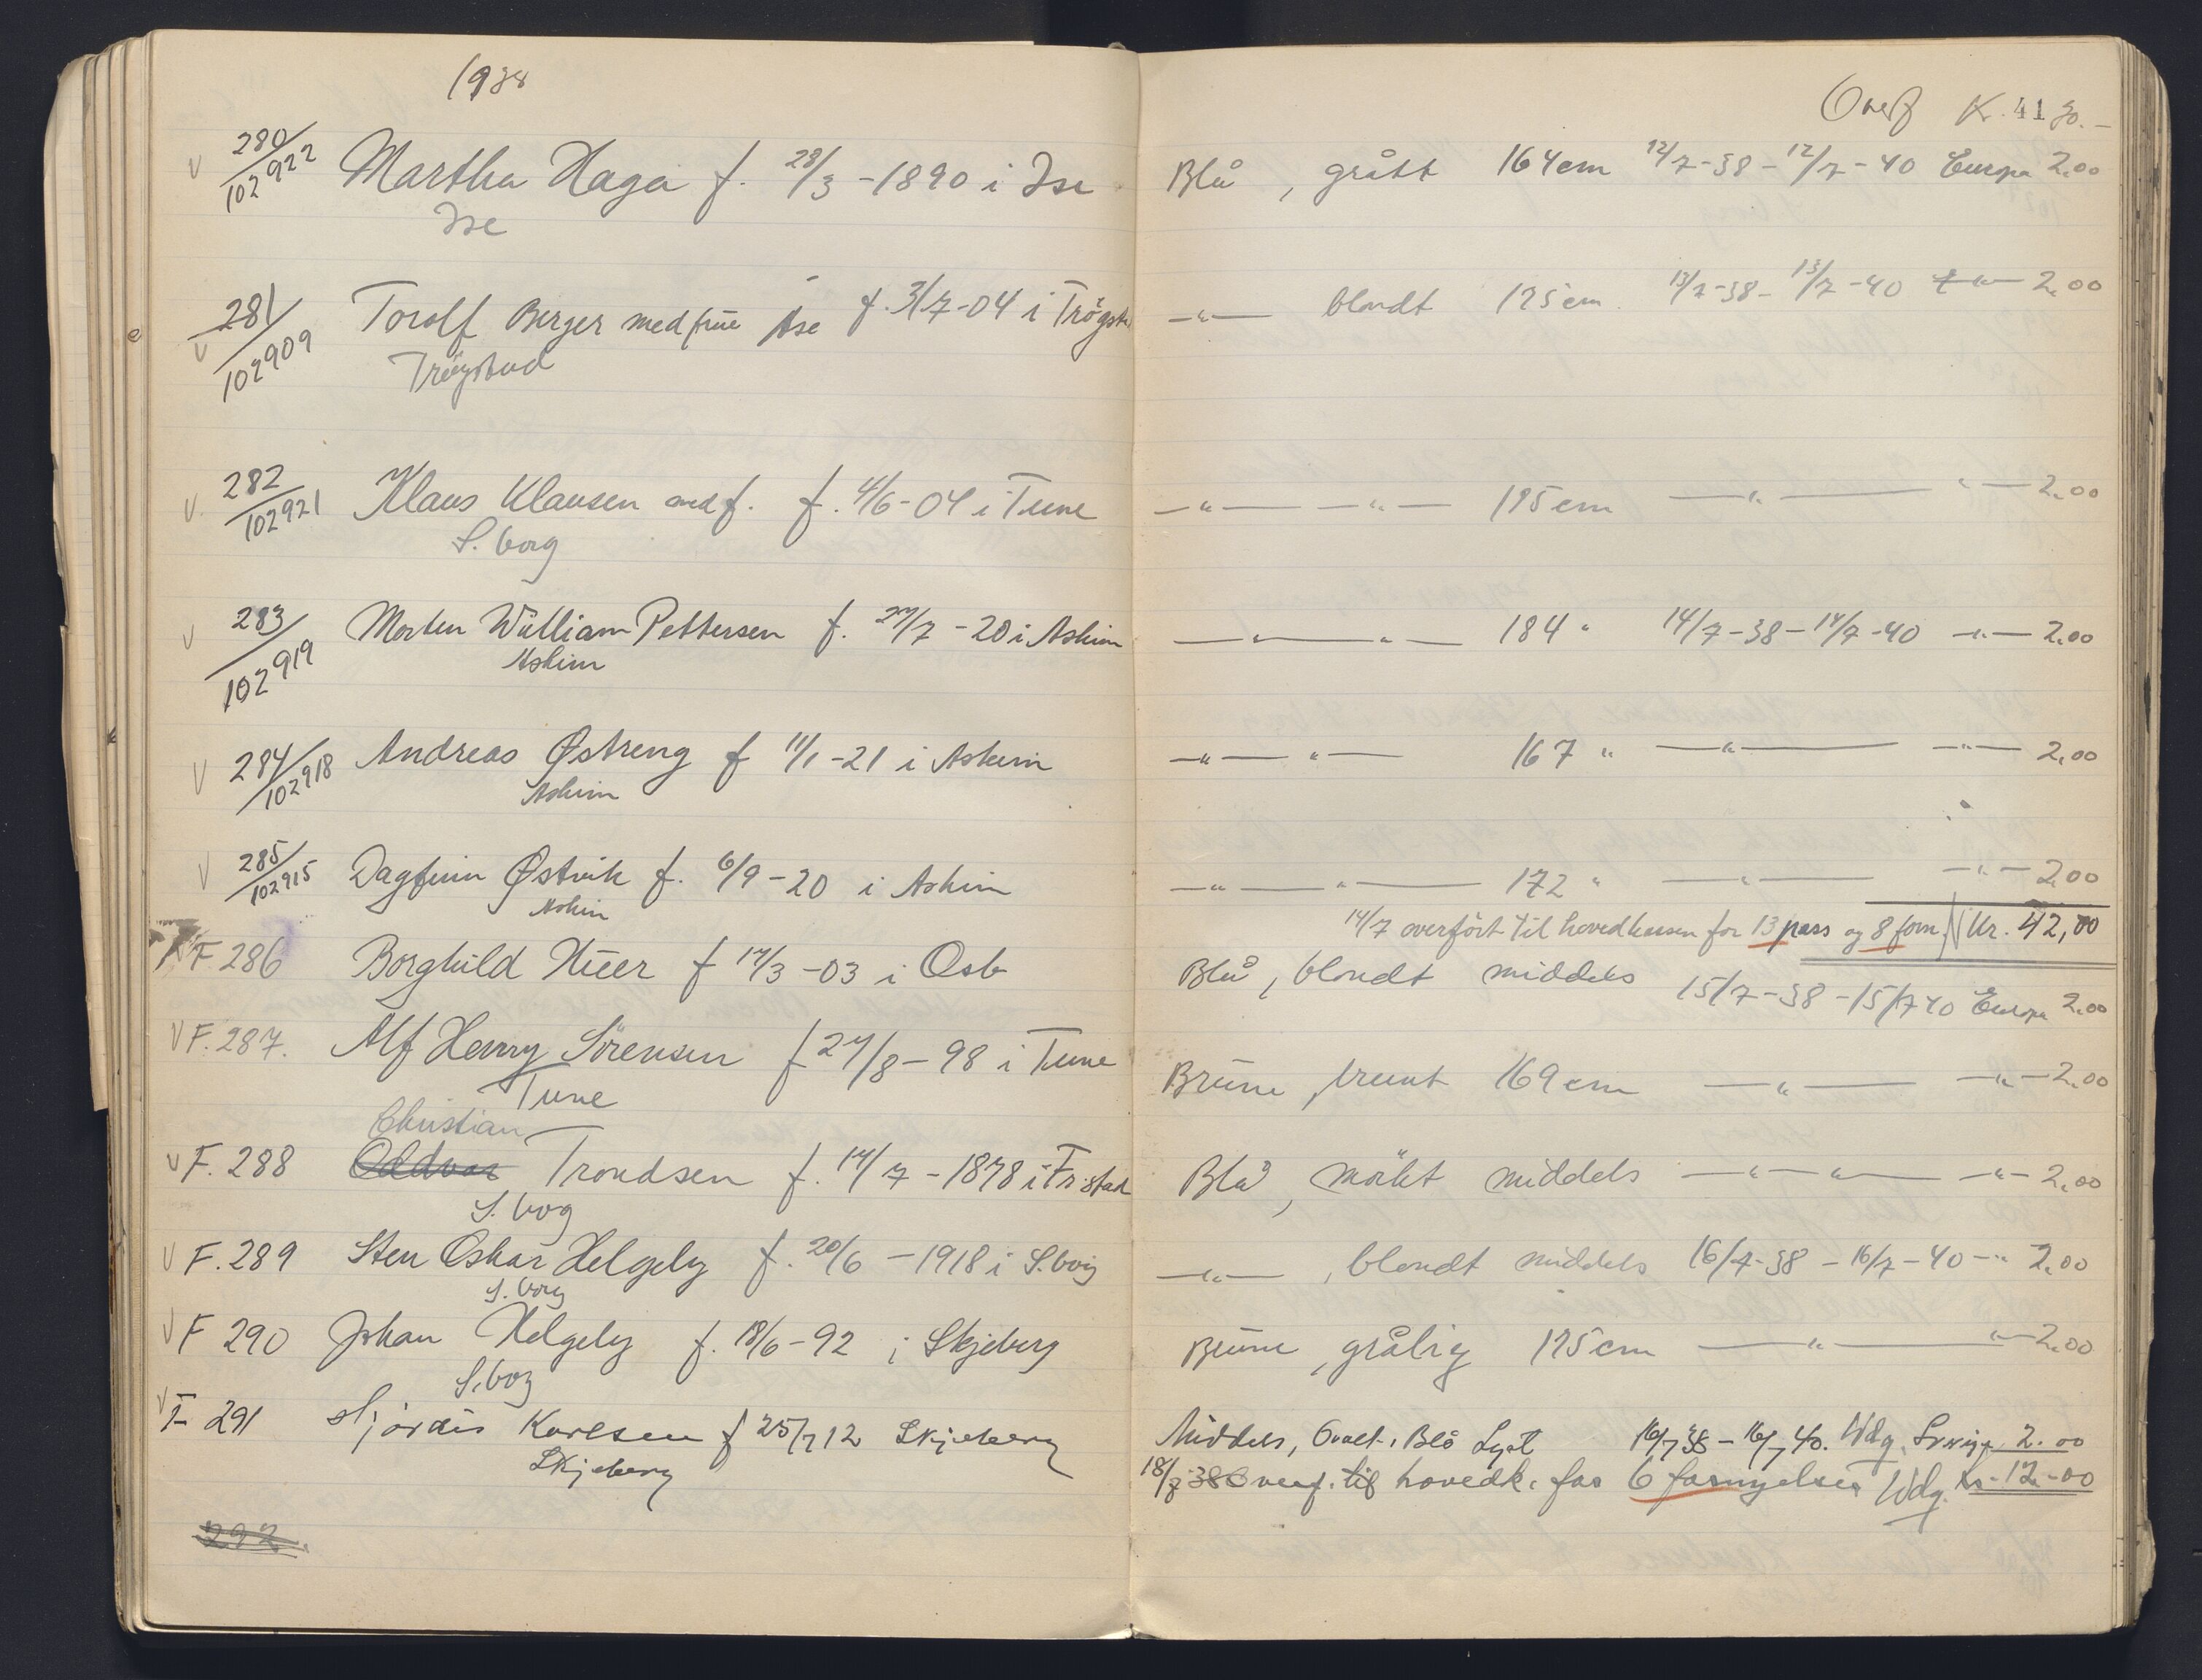 1938
280/102922 Martha Haga f. 28/3 -1890 i Ise
Ise
281/102909 Torolf Berger med frue Åse f. 3/7-04 i Trøgst
Trøgstad
282/102921 Klaus Klausen med f. f. 4/6-04 i Tune
S.borg
283/102919 Morten William Pettersen f. 27/7 -20 i Askim
Askim
284/102918 Andreas Østreng f 11/1 -21 i Askim
Askim
285/102915 Dagfinn Østvik f. 6/9-20 i Askim
Askim
F. 286 Borghild f 17/3 -03 i
F. 287. Alf Henry Sörensen f 27/8-98 i Tune
Tune
Christian
F. 288 Oddvar Trondsen f. 14/7 -1878 i Fr.stad
S.borg
F. 289 Sten Oskar Helgeby f. 20/6 -1918 i S.borg
S.borg
F 290 Johan Helgeby f. 18/6-92 i Skjeberg
S.borg
F 291 Hjördis Karlsen f 25/7 12 Skjeberg
Skjeberg
292
Overf K. 41 30.-
Blå, grått 164 cm 12/7-38-12/7-40 Europa 2.00
—"— blondt 175 cm 13/7-38-13/7-40 —"— 2.00
—"— —"— 175 cm —"— "— 2.00
—"— "— 184 " 14/7-38-14/7-40 —"— 2.00
—"— "— 167 " —"— —"— 2.00
—"— "— 172 " —"— —"— 2.00
14/7 overfört til hovedkassen for 13 pass og 8 forn. Kr. 42,00
Blå, blondt middels 15/7-38-15/7 40 Europa 2.00
Brune, brunt 169 cm —"— —"— 2.00
Blå, mörkt middels —"— "— —"— 2.00
—"—, blondt middels 16/7-38-16/7-40 —" 2.00
Brune, grålig 175 cm —"— "— 2.00
Middels, Oval, Blå Lyst 16/7 38-16/7 40. Wdg. 2.00
18/7-38 Overf. til hovedk. for 6 fornyelser Wdg. kr. 12-00